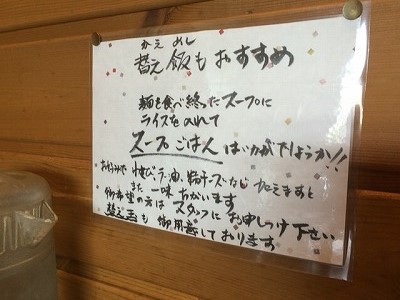 かえ めし
替え飯もおすすめ
麺を食べ終ったスープに
ライスを入れて
スープごはんはいかがでしょうか!!
お好みで わさび、ラー油、粉チーズなど 加えますと
また 一味 ちがいます
御希望の方は スタッフに お申しつけ下さい
替え玉も 御用意しております